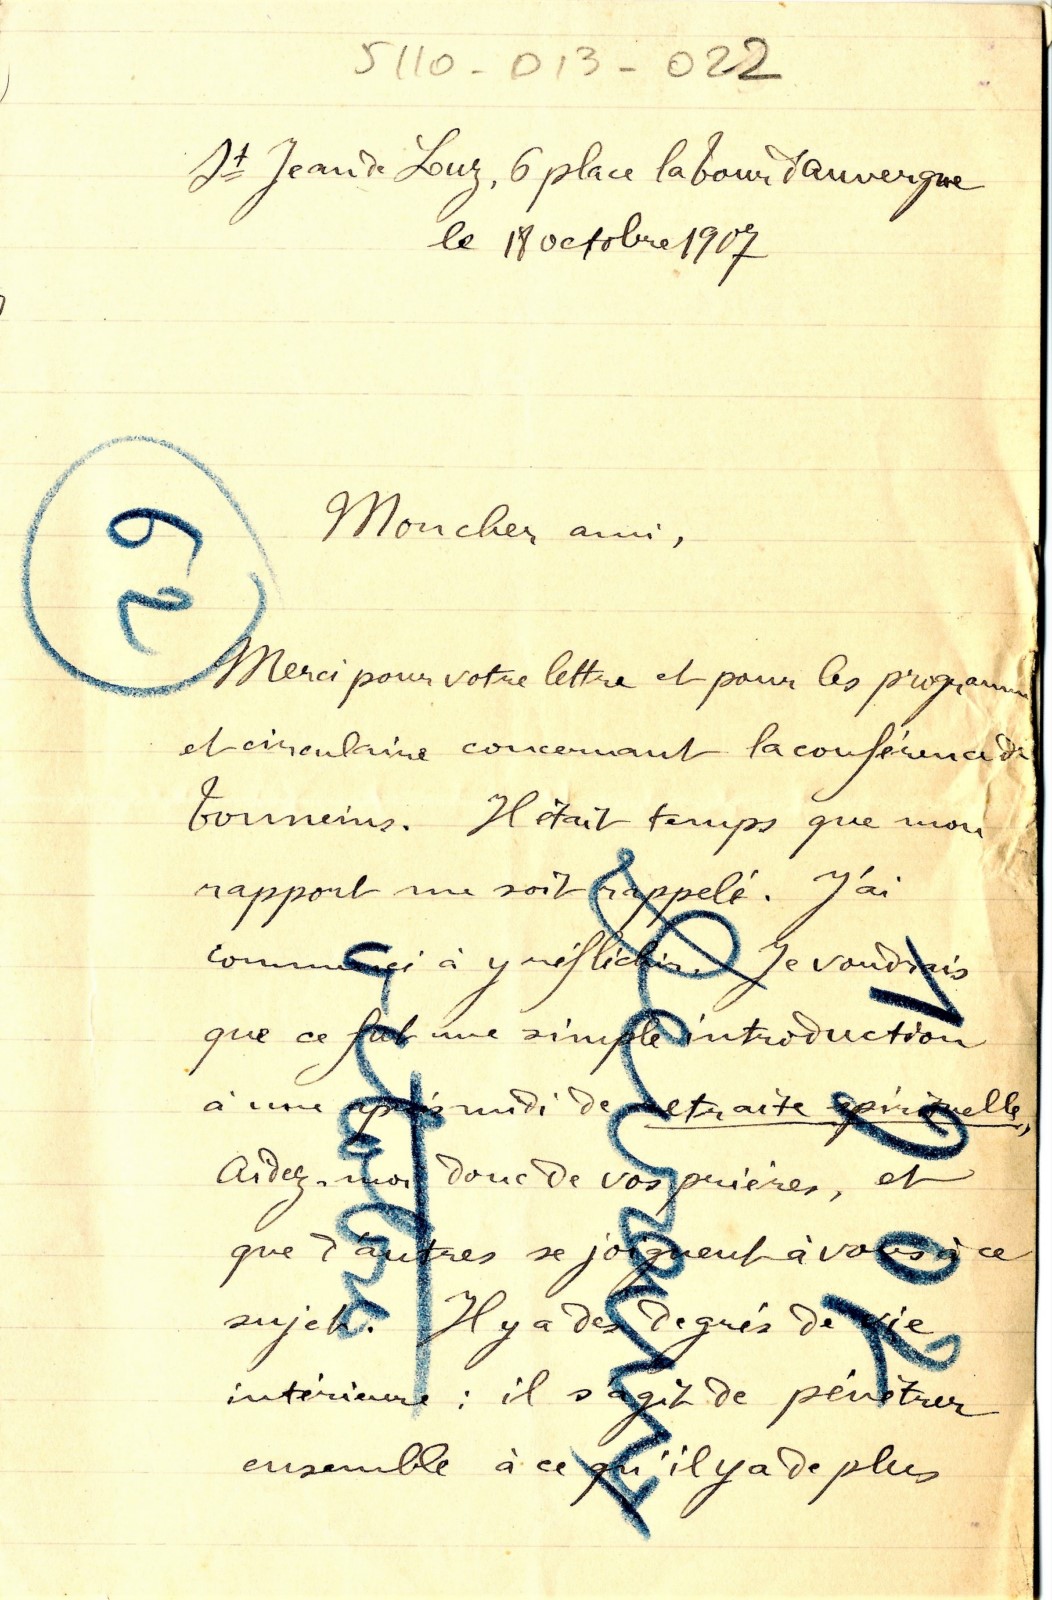 5110-013-022
St Jean de Luz, 6 place latour d'auvergne
le 18 octobre 1907
62
Mon cher ami,
Merci pour votre lettre et pour les programm
et circulaire concernant la conférence de
Tonneins. Il était temps que mon
rapport me soit rappelé. J'ai
commencé à y réfléchir. Je voudrais
que ce fut une simple introduction
à une après midi de retraite spirituelle,
Aidez-moi donc de vos prières, et
que d'autres se joignent à vous à ce
sujet. Il y a des degrés de vie
intérieure : il s'agit de pénétrer
ensemble à ce qu'il y a de plus